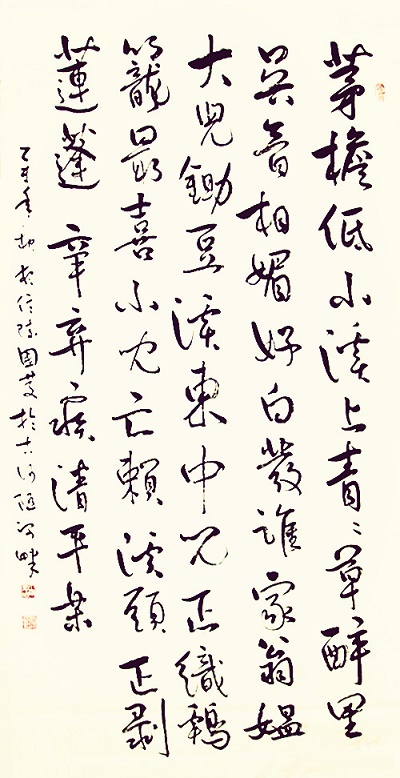 茅檐低小溪上青〻草醉里
吳音相媚好白發誰家翁媼
大兒鋤豆溪東中兒正織鷄
籠最喜小兒亡賴溪頭正剝
蓮蓬 辛弃疾清平樂
乙年於信陵國於畔